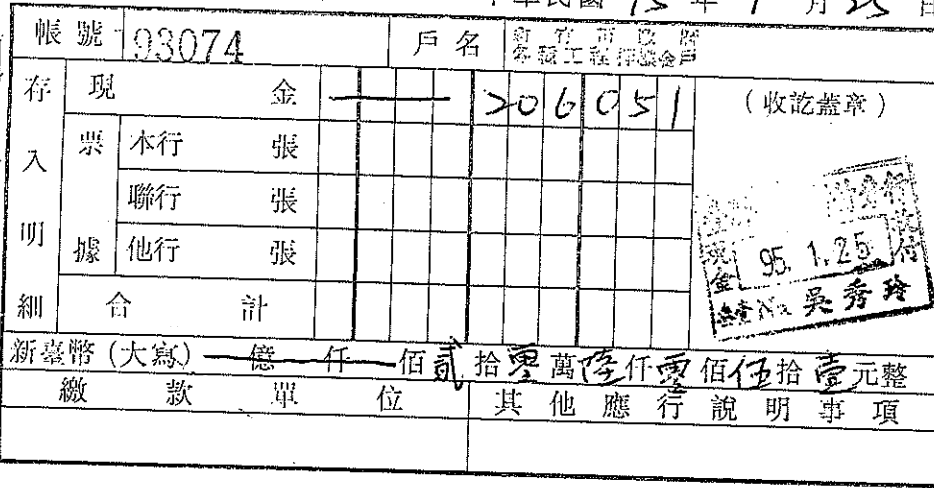 中華民國 95 年 1 月 25 日
帳號 93074 戶名
存入明細 現金 206051 (收訖蓋章)
票據 本行 張
聯行 張
他行 張
現金 95. 1. 25 收付
吳秀玲
合計
新臺幣(大寫) 億 仟 佰 貳 拾 零 萬 陸 仟 零 佰 伍 拾 壹 元整
繳款單位 其他應行說明事項